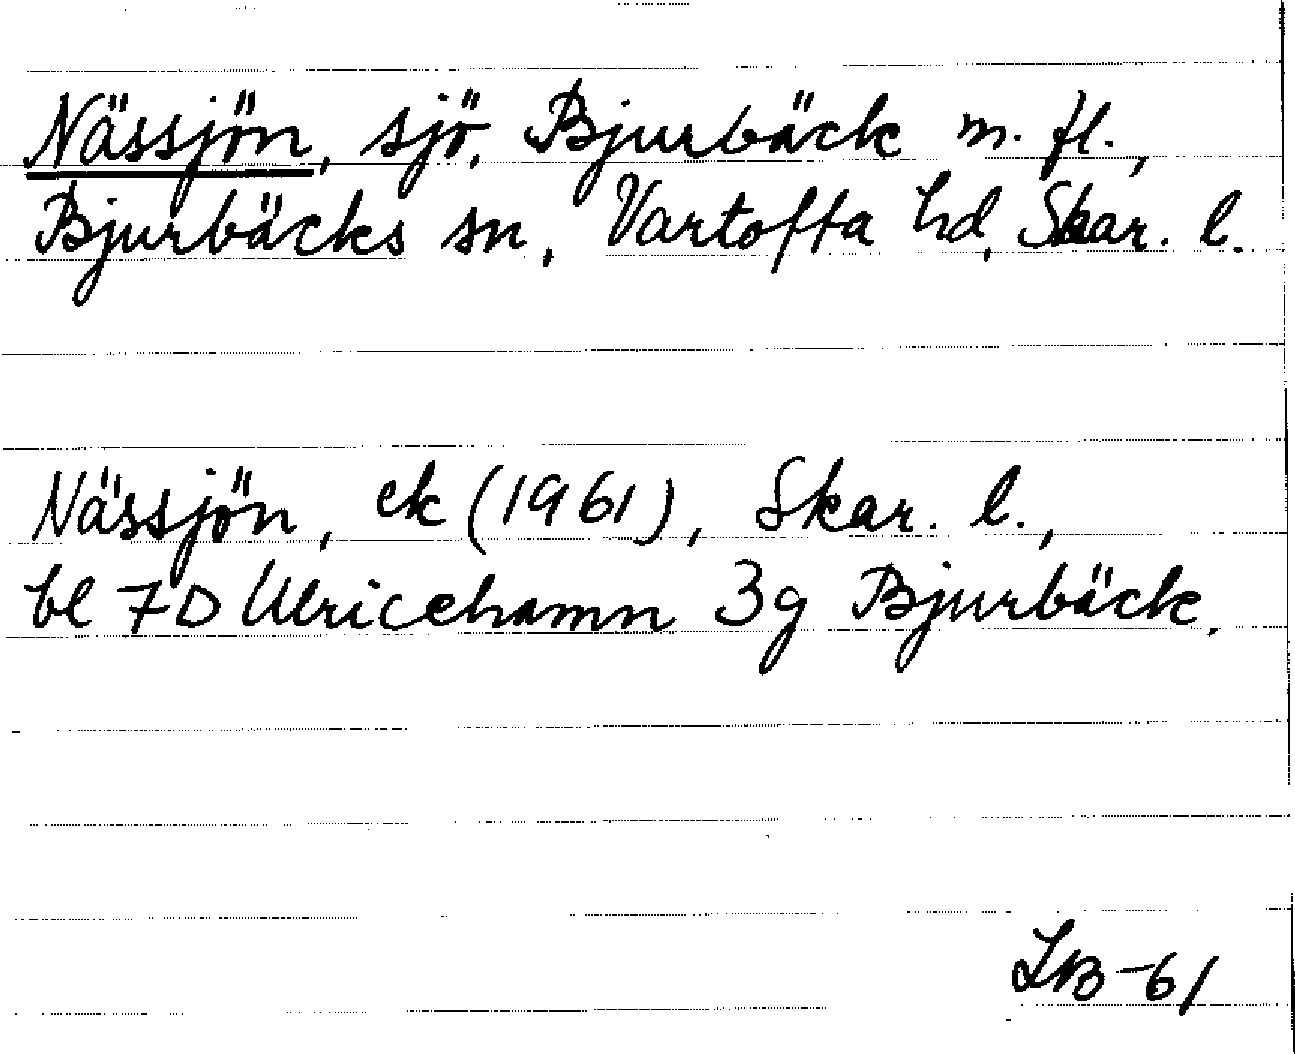 Nässjön, sjö, Bjurbäck m. fl.,
Bjurbäcks sn, Vartofta hd, Skar. l.
Nässjön, ek (1961), Skar. l.,
bl 7D Ulricehamn 3g Bjurbäck.
LB-61